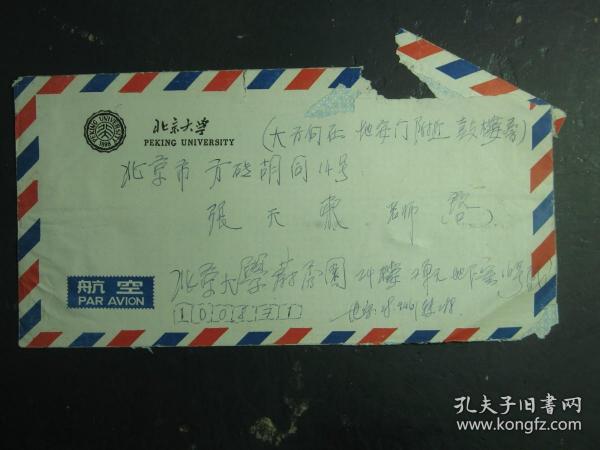 北京大学
PEKING UNIVERSITY
PEKING UNIVERSITY 1898
(大方向在 地安门附近 鼓楼
北京市 方砖胡同14号
張天東 老师 (啓)
北京大學蔚秀園 24樓 2單元 地下室
航空
PAR AVION
100871
孔夫子旧书网
www.kongfz.com